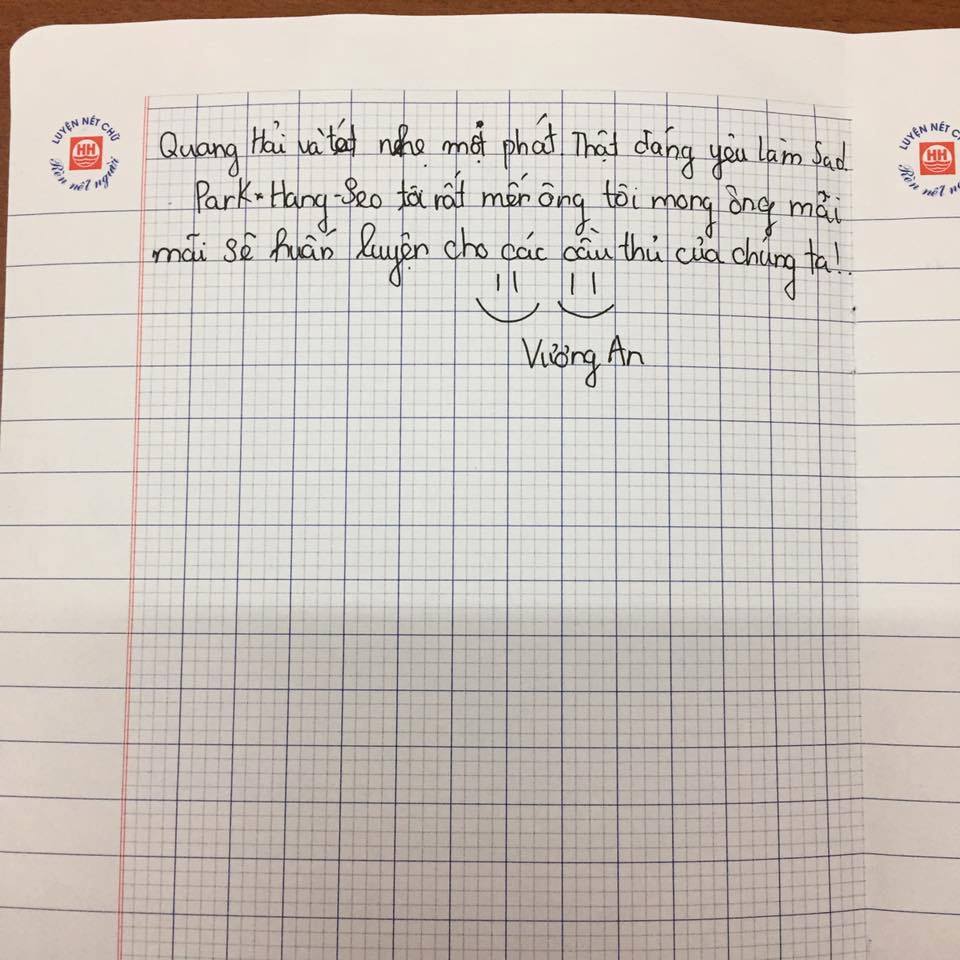 LUYỆN NÉT CHỮ
HH
Rèn nết người
Quang Hải và tát nhẹ một phát Thật đáng yêu làm Sad.
Park-Hang-Seo tôi rất mến ông tôi mong ông mãi
mãi sẽ huấn luyện cho các cầu thủ của chúng ta!..
Vương An
LUYỆN NÉT CH
HH
Rèn nết n